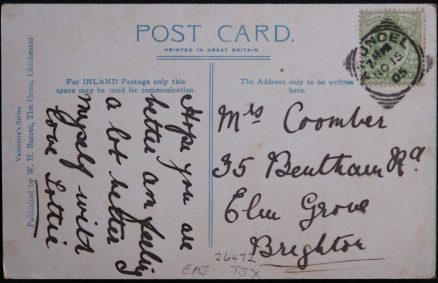 POST CARD.
PRINTED IN GREAT BRITAIN
For INLAND Postage only this
space may be used for communication.
The Address only to be written
here.
Valentine's Series
Published by W. H. Barret, The Cross, Chichester
Hope you are
better am feeling
a lot better
myself with
love Lottie
ARUNDEL
15
05
Mrs Coomber
35 Bentham Rd
Elm Grove
Brighton
26472
EAJ TSX